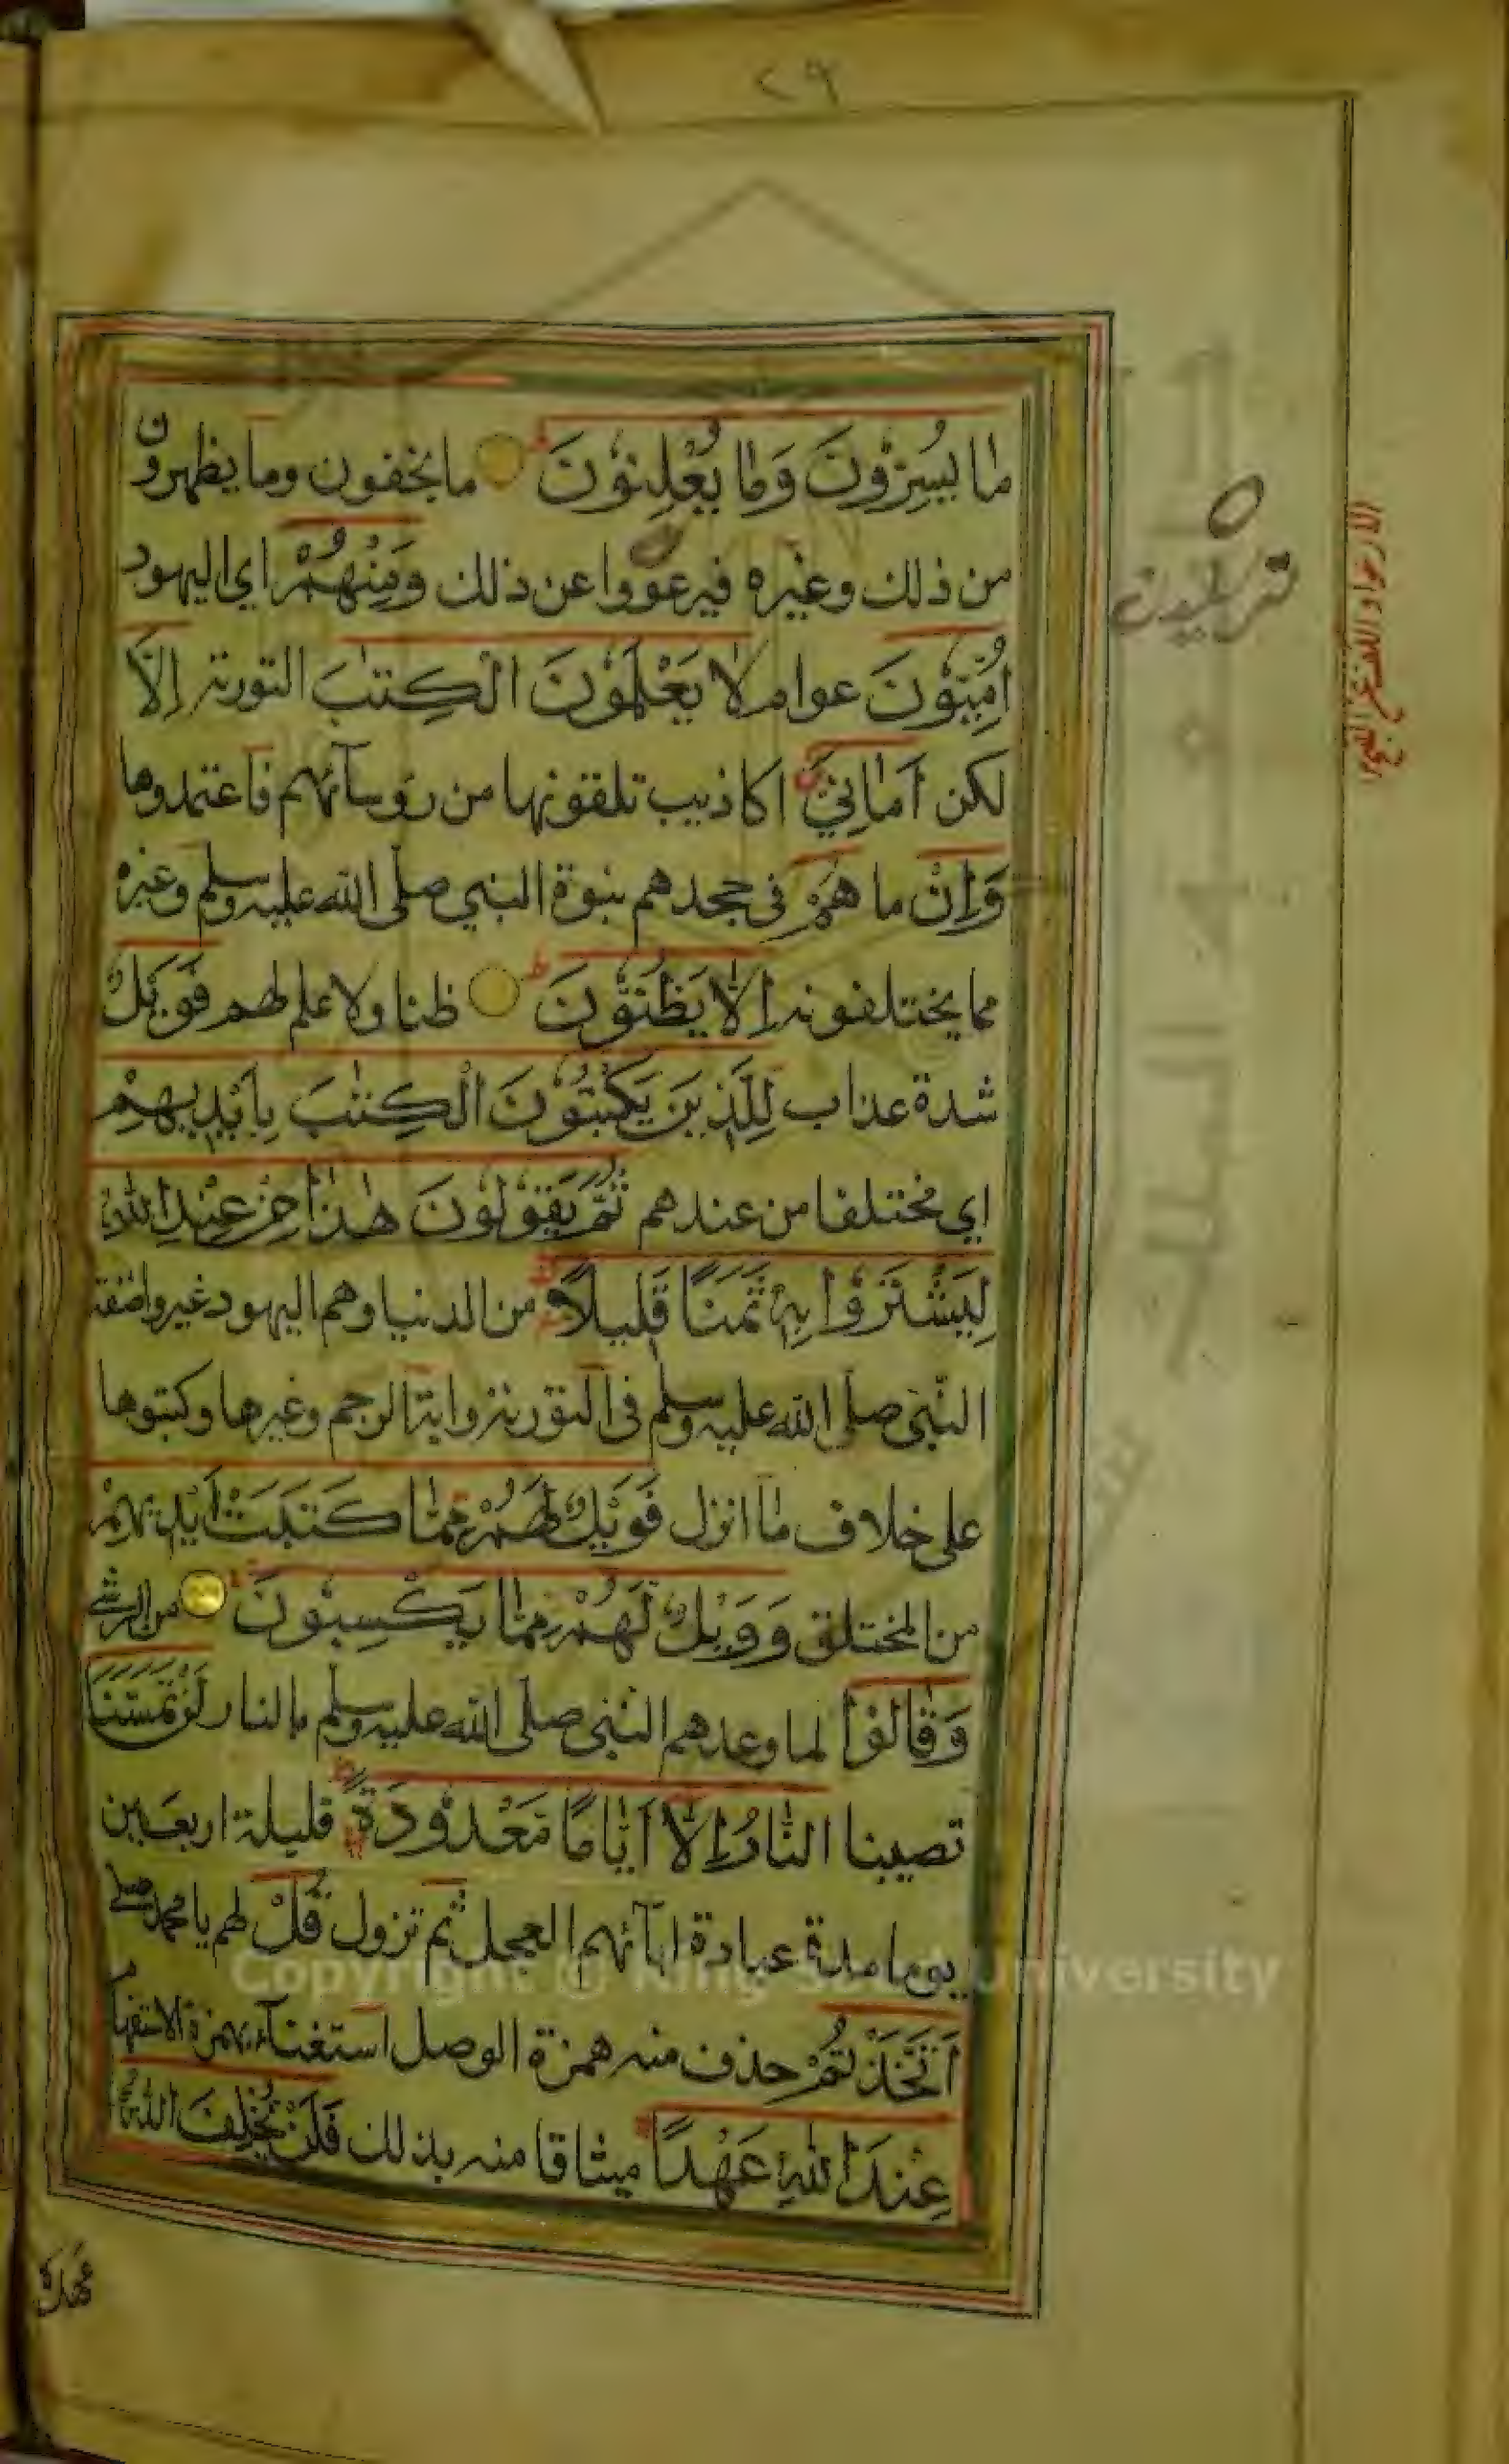 ٢٩
مَا يُسِرُّونَ وَمَا يُعْلِنُونَ ما يخفون وما يظهرون
من ذلك وغيره فيرعووا عن ذلك وَمِنْهُمْ اي اليهود
اُمِّيُّونَ عوام لَا يَعْلَمُونَ الْكِتٰبَ التورية اِلَّا
لكن اَمَانِيَّ اكاذيب تلقونها من رؤسآئهم فاعتمدوها
وَاِنْ ما هُمْ فى جحدهم بنبوة النبي صلى الله عليه وسلم وغيره
مما يختلقونه اِلَّا يَظُنُّونَ ظنا ولا علم لهم فَوَيْلٌ
شدة عذاب لِلَّذِينَ يَكْتُبُونَ الْكِتٰبَ بِاَيْدِيهِمْ
اي مختلقا من عندهم ثُمَّ يَقُولُونَ هٰذَا مِنْ عِنْدِ اللهِ
لِيَشْتَرُوا بِهِ ثَمَنًا قَلِيلًا من الدنيا وهم اليهود غيروا صفة
النبي صلى الله عليه وسلم فى التورية واية الرجم وغيرها وكتبوها
على خلاف ما انزل فَوَيْلٌ لَهُمْ مِمَّا كَتَبَتْ اَيْدِيهِمْ
من المختلق وَوَيْلٌ لَهُمْ مِمَّا يَكْسِبُونَ من الرشى
وَقَالُوا لما وعدهم النبي صلى الله عليه وسلم بالنار لَنْ تَمَسَّنَا
تصيبنا النَّارُ اِلَّا اَيَّامًا مَعْدُودَةً قليلة اربعين
يوما مدة عبادة ابآئهم العجل ثم تزول قُلْ لهم يا محمد صلى
اَتَّخَذْتُمْ حذف منه همزة الوصل استغنآء بهمزة الاستفهام
عِنْدَ اللهِ عَهْدًا ميثاقا منه بذلك فَلَنْ يُخْلِفَ اللهُ
عَهْدَهُ
Copyright © King Saud University